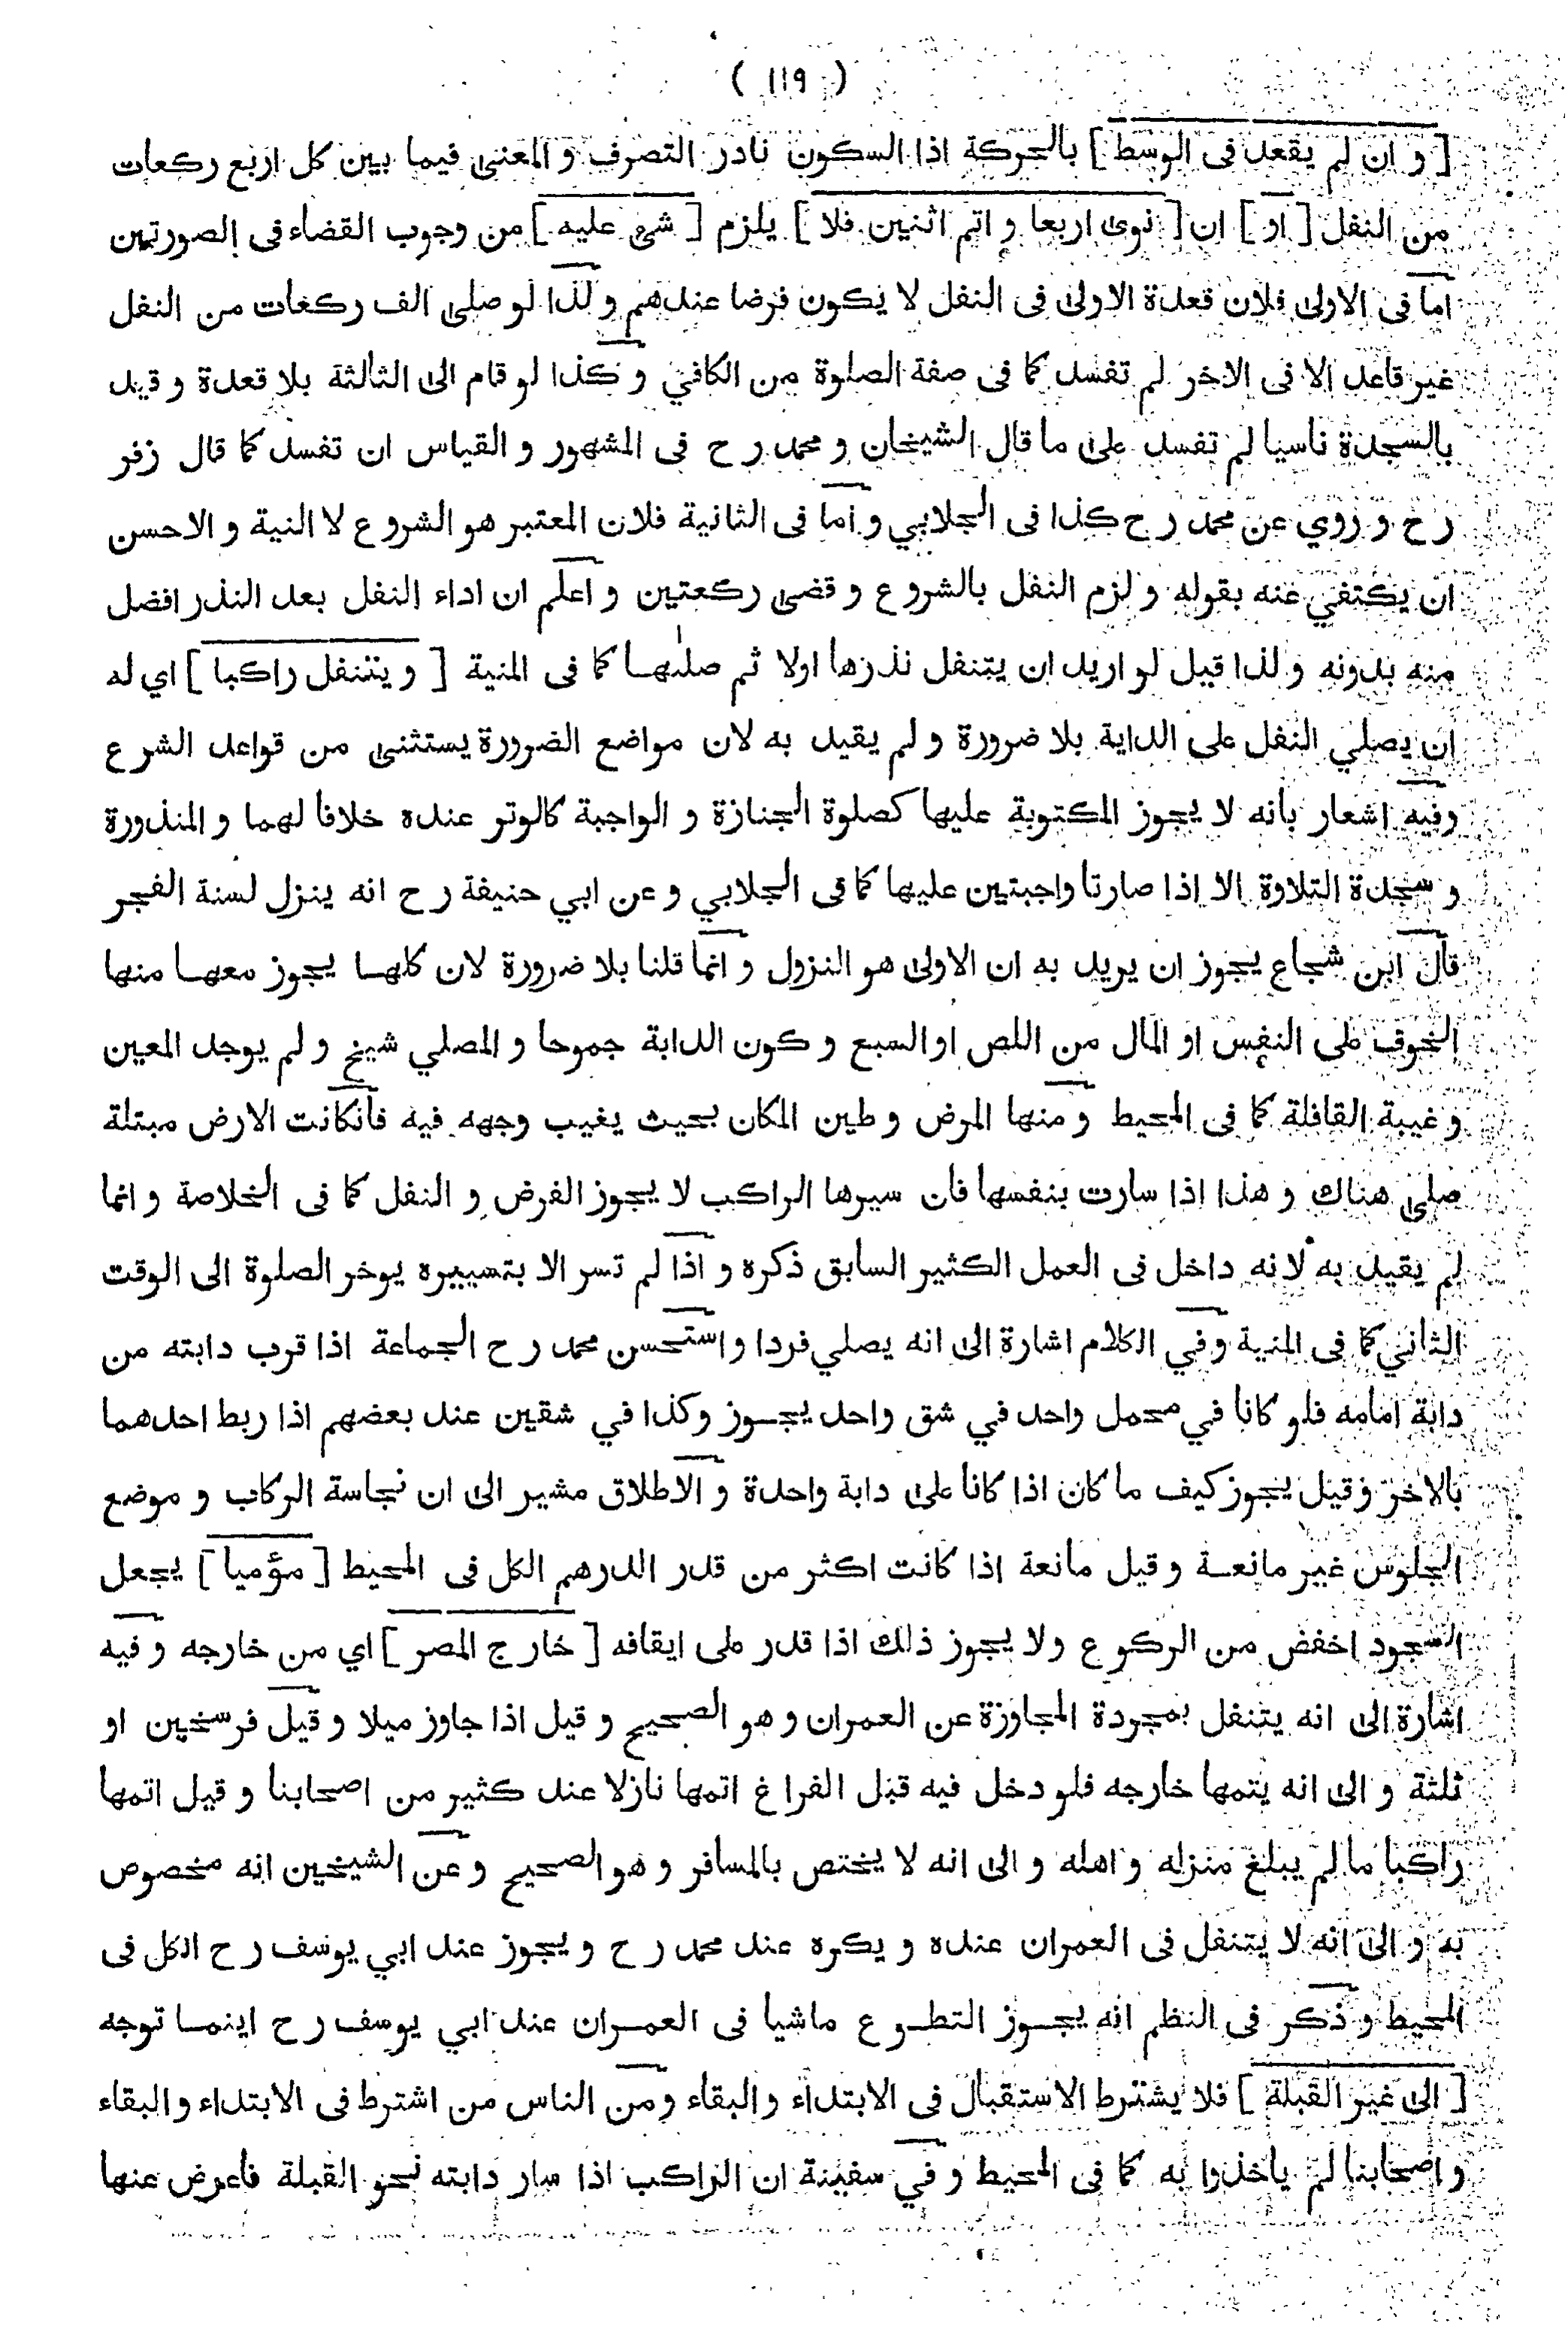 ( ١١٩ )
[ و ان لم يقعد فى الوسط ] بالحركة اذا السكون نادر التصرف و المعنى فيما بين كل اربع ركعات
من النفل [ او ] ان [ نوى اربعا و اتم اثنين فلا ] يلزم [ شئ عليه ] من وجوب القضاء فى الصورتين
اما فى الاولى فلان قعدة الاولى فى النفل لا يكون فرضا عندهم و لذا لو صلى الف ركعات من النفل
غير قاعد الا فى الاخر لم تفسد كما فى صفة الصلوة من الكافي و كذا لو قام الى الثالثة بلا قعدة و قيد
بالسجدة ناسيا لم تفسد على ما قال الشيخان و محمد رح فى المشهور و القياس ان تفسد كما قال زفر
رح و روي عن محمد رح كذا فى الجلابي و اما فى الثانية فلان المعتبر هو الشروع لا النية و الاحسن
ان يكتفي عنه بقوله و لزم النفل بالشروع و قضى ركعتين و اعلم ان اداء النفل بعد النذر افضل
منه بدونه و لذا قيل لو اريد ان يتنفل نذرها اولا ثم صلٰيها كما فى المنية [ و يتنفل راكبا ] اي له
ان يصلي النفل على الداية بلا ضرورة و لم يقيد به لان مواضع الضرورة يستثنى من قواعد الشرع
وفيه اشعار بانه لا يجوز المكتوبة عليها كصلوة الجنازة و الواجبة كالوتر عنده خلافا لهما و المنذورة
و سجدة التلاوة الا اذا صارتا واجبتين عليها كما فى الجلابي و عن ابي حنيفة رح انه ينزل لسنة الفجر
قال ابن شجاع يجوز ان يريد به ان الاولى هو النزول و انما قلنا بلا ضرورة لان كلها يجوز معها منها
الخوف على النفس او المال من اللص او السبع و كون الدابة جموحا و المصلي شيخ و لم يوجد المعين
و غيبة القافلة كما فى المحيط و منها المرض و طين المكان بحيث يغيب وجهه فيه فانكانت الارض مبتلة
صلى هناك و هذا اذا سارت بنفسها فان سيرها الراكب لا يجوز الفرض و النفل كما فى الخلاصة و انما
لم يقيد به لانه داخل فى العمل الكثير السابق ذكره و اذا لم تسر الا بتسييره يوخر الصلوة الى الوقت
الثاني كما فى المنية و في الكلام اشارة الى انه يصلي فردا و استحسن محمد رح الجماعة اذا قرب دابته من
دابة امامه فلو كانا في محمل واحد في شق واحد يجوز وكذا في شقين عند بعضهم اذا ربط احدهما
بالاخر و قيل يجوز كيف ما كان اذا كانا على دابة واحدة و الاطلاق مشير الى ان نجاسة الركاب و موضع
الجلوس غير مانعة و قيل مانعة اذا كانت اكثر من قدر الدرهم الكل فى المحيط [ مؤميا ] يجعل
السجود اخفض من الركوع ولا يجوز ذلك اذا قدر على ايقافه [ خارج المصر ] اي من خارجه و فيه
اشارة الى انه يتنفل بمجردة المجاوزة عن العمران و هو الصحيح و قيل اذا جاوز ميلا و قيل فرسخين او
ثلثة و الى انه يتمها خارجه فلو دخل فيه قبل الفراغ اتمها نازلا عند كثير من اصحابنا و قيل اتمها
راكبا ما لم يبلغ منزله و اهله و الى انه لا يختص بالمسافر و هو الصحيح و عن الشيخين انه مخصوص
به و الى انه لا يتنفل فى العمران عنده و يكره عند محمد رح و يجوز عند ابي يوسف رح الكل فى
المحيط و ذكر فى النظم انه يجوز التطوع ماشيا فى العمران عند ابي يوسف رح اينما توجه
[ الى غير القبلة ] فلا يشترط الاستقبال فى الابتداء و البقاء و من الناس من اشترط فى الابتداء و البقاء
و اصحابنا لم ياخذوا به كما فى المحيط و في سفينة ان الراكب اذا سار دابته نحو القبلة فاعرض عنها